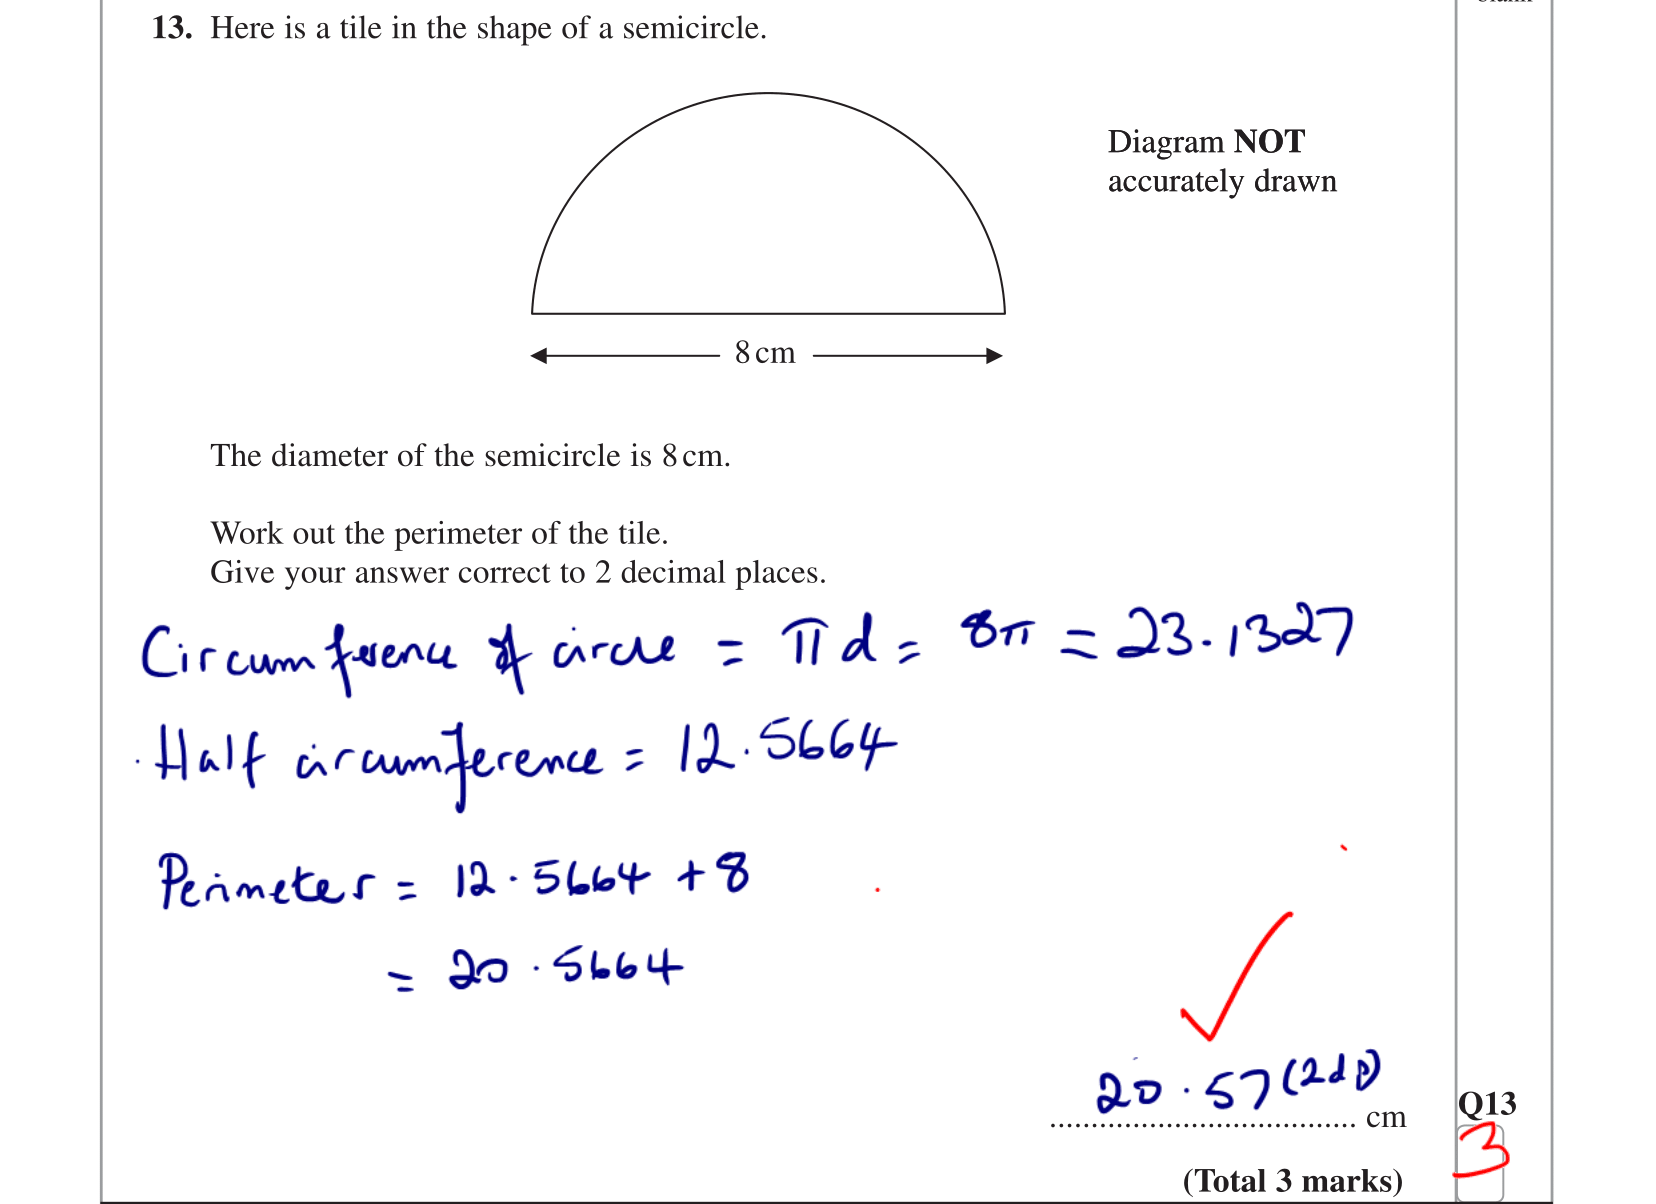 13. Here is a tile in the shape of a semicircle.
Diagram NOT
accurately drawn
8 cm
The diameter of the semicircle is 8 cm.
Work out the perimeter of the tile.
Give your answer correct to 2 decimal places.
Circumference of circle = πd = 8π = 23.1327
Half circumference = 12.5664
Perimeter = 12.5664 + 8
= 20.5664
20.57 (2dp)
.................................... cm
Q13
3
(Total 3 marks)